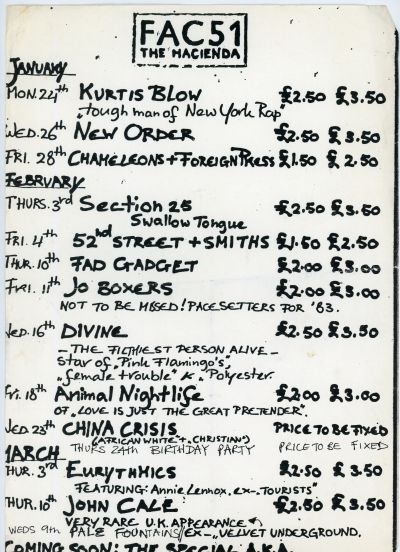 FAC51
THE HACIENDA
JANUARY
MON.24th KURTIS BLOW £2.50 £3.50
"tough man of New York Rap"
WED.26th NEW ORDER £2.50 £3.50
FRI. 28th CHAMELEONS + FOREIGN PRESS £1.50 £2.50
FEBRUARY
THURS. 3rd Section 25 £2.50 £3.50
Swallow Tongue
FRI. 4th 52nd STREET + SMITHS £1.50 £2.50
THUR. 10th FAD GADGET £2.00 £3.00
FRI. 11th JO BOXERS £2.00 £3.00
NOT TO BE MISSED! PACESETTERS FOR '83.
WED. 16th DIVINE £2.50 £3.50
– THE FILTHIEST PERSON ALIVE –
Star of "Pink Flamingo's",
"female trouble" & "Polyester.
Fri. 18th Animal Nightlife £2.00 £3.00
OF "LOVE IS JUST THE GREAT PRETENDER".
Wed. 23rd CHINA CRISIS PRICE TO BE FIXED
(AFRICAN WHITE" + "CHRISTIAN")
THURS 24th BIRTHDAY PARTY PRICE TO BE FIXED
MARCH
THUR. 3rd EURYTHMICS £2.50 £3.50
FEATURING: Annie Lennox, ex-"TOURISTS"
THUR. 10th JOHN CALE £2.50 £3.50
VERY RARE U.K. APPEARANCE
WEDS 9th PALE FOUNTAINS / EX-"VELVET UNDERGROUND.
COMING SOON: THE SPECIAL A.K.A.